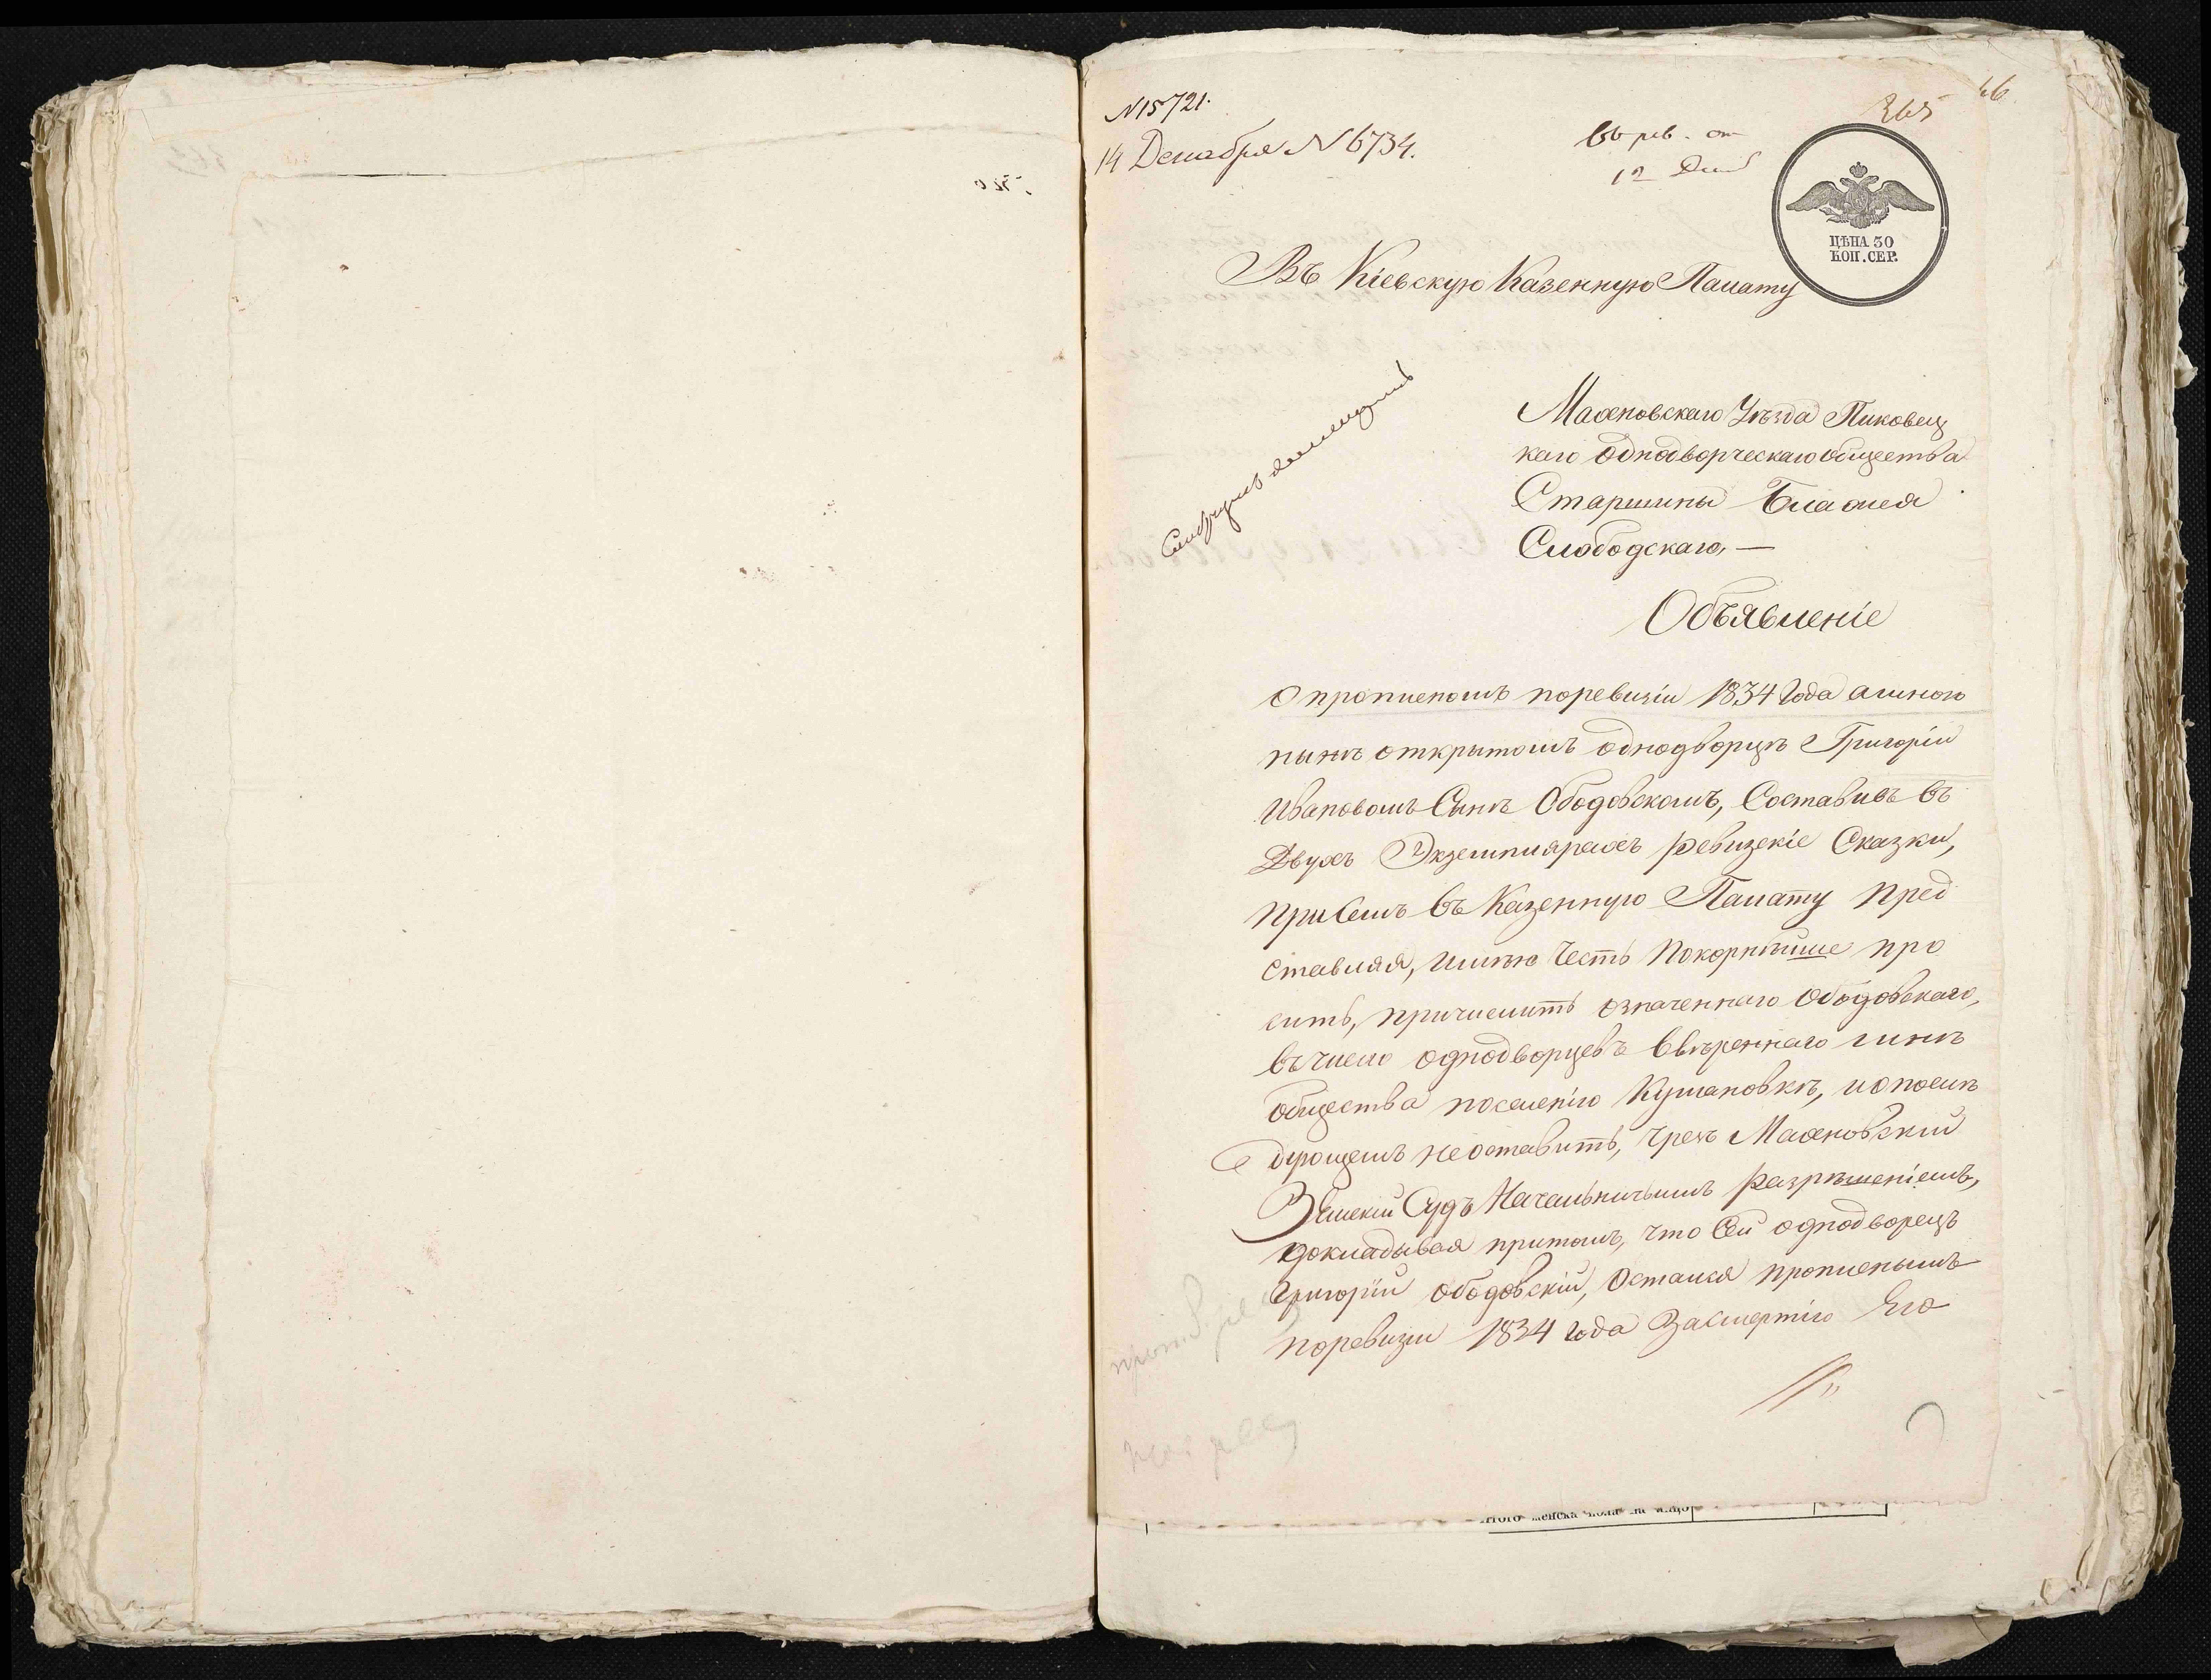 N 15721.
14 Декабря N 6734.
365
46
12
ЦѢНА 30
КОП. СЕР.
Въ Кіевскую Казенную Палату
Махновскаго Уѣзда Пиковец
каго Однодворческаго общества
Старшины Блажея
Слободскаго, —
Объявленіе
О прописномъ поревизіи 1834 Года а мною
нынѣ открытомъ однодворцѣ Григоріи
Ивановомъ Сынѣ Ободовскомъ, Составивъ въ
Двухъ Экземплярахъ ревизскіе Сказки,
При Семъ въ Казенную Палату Пред
ставляя, имѣю Честь Покорнѣйше про
сить, причислить означеннаго Ободовскаго,
въ число однодворцевъ ввѣреннаго мнѣ
общества поселенію Кумановкѣ, и о посл
дующемъ неоставить, чрезъ Махновскій
Земскій Судъ Начальничьимъ разрѣшеніемъ,
докладывая притомъ, что Сей однодворецъ
Григорій Ободовскій, Остался прописнымъ
поревизіи 1834 года Засмертію Его